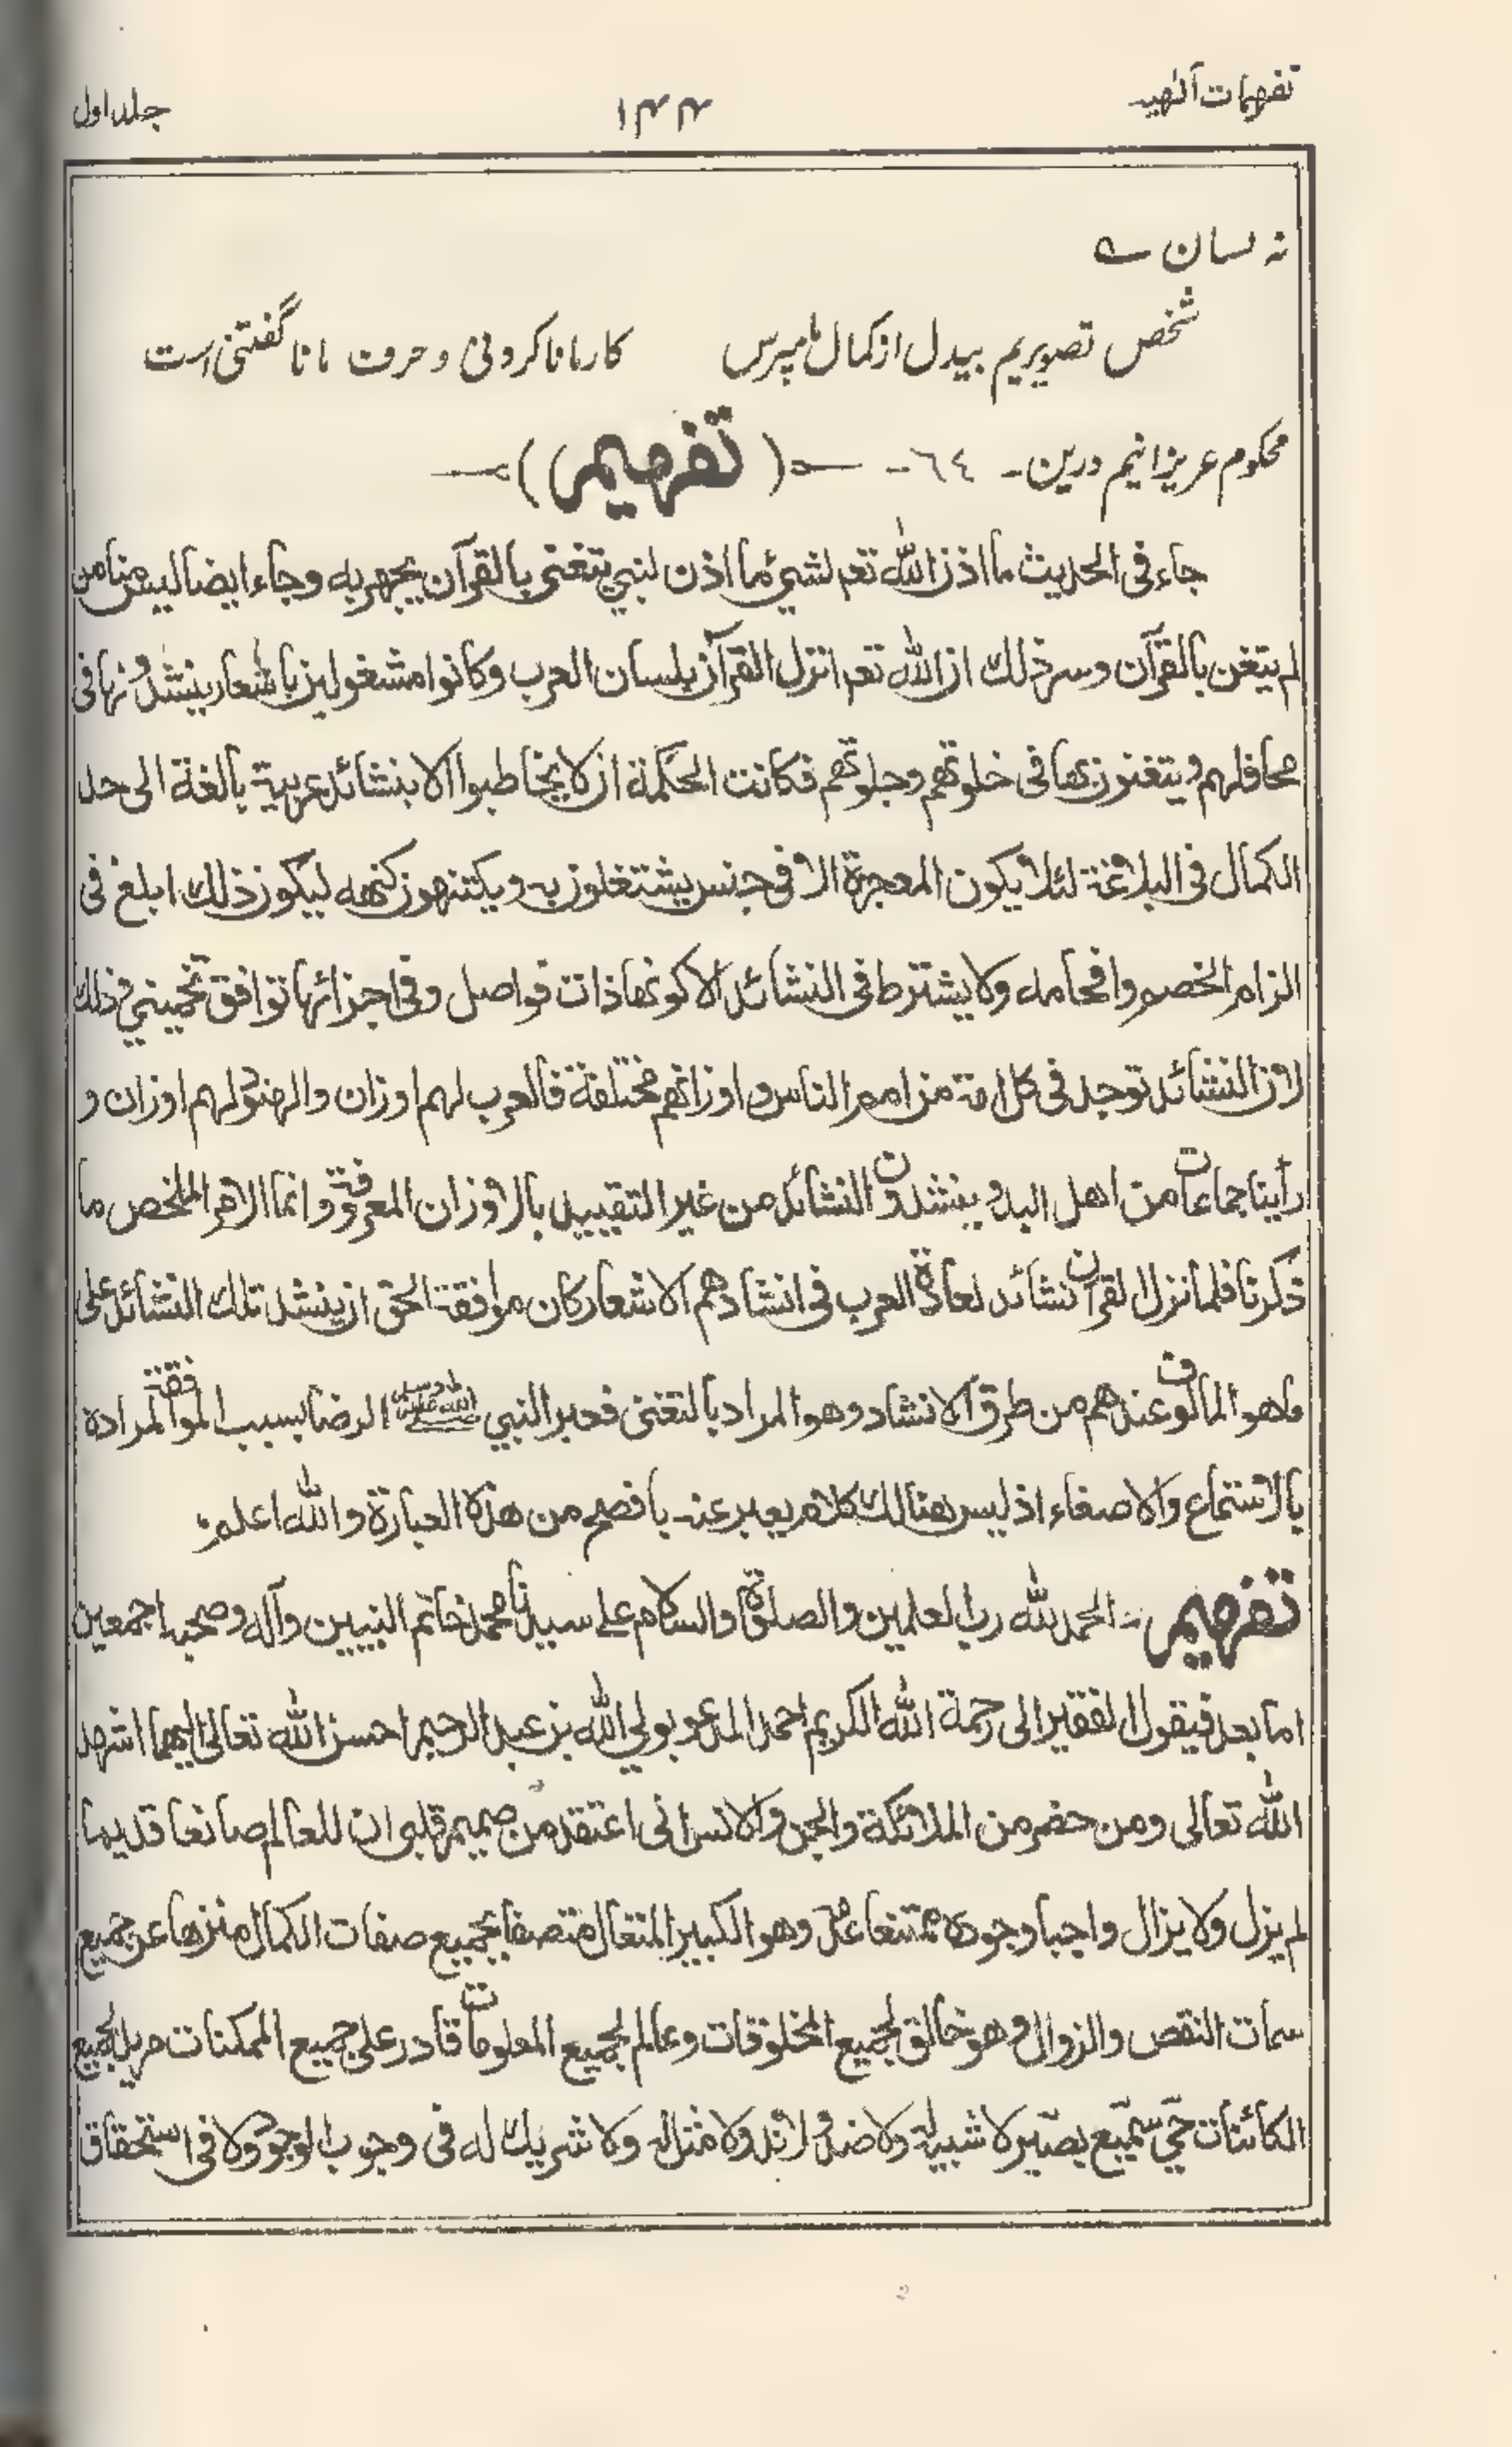 تفهيمات آلٰهيه ۱۴۴ جلد اول
نہ لسان ے
شخص تصویریم بیدل از کمال ما مپرس کار ما نا کردنی و حرف ما نا گفتنی است
محکوم عزیزانیم درین۔ -٦٤- (تفهيم)
جاء فى الحديث ما اذن الله تعم لشيئ ما اذن لنبي يتغنى بالقرآن يجهر به وجاء ايضا ليس منا من
لم يتغن بالقرآن وسر ذلك ان الله تعم انزل القرآن بلسان العرب وكانوا مشغولين باشعار ينشدونها فى
محافلهم ويتغنون بها فى خلوتهم وجلوتهم فكانت الحكمة ان لا يخاطبوا الا بنشائد عربية بالغة الى حد
الكمال فى البلاغة لئلا يكون المعجزة الا فى جنس يشتغلون به ويكتنهون كنهه ليكون ذلك ابلغ فى
الزام الخصم وافحامه ولا يشترط فى النشائد الا كونها ذات فواصل وفى اجزائها توافق تخميني وذلك
لان النشائد توجد فى كل امة من امم الناس واوزانهم مختلفة فالعرب لهم اوزان والهنود لهم اوزان و
رأينا جماعات من اهل البدو ينشدون النشائد من غير التقييد بالاوزان المعروفة وانما الامر الملخص ما
ذكرنا فلما نزل القرآن نشائد لعادة العرب فى انشادهم الاشعار كان موافقة الحق ان ينشد تلك النشائد على
ما هو المالوف عندهم من طرق الانشاد وهو المراد بالتغنى فعبر النبي صلى الله عليه وسلم الرضا بسبب الموافقة المرادة
بالاستماع والاصغاء اذ ليس هنالك كلام يعبر عنه بافصح من هذه العبارة والله اعلم،
تفهيم :- الحمد لله رب العلمين والصلوة والسلام على سيدنا محمد خاتم النبيين وآله وصحبه اجمعين
اما بعد فيقول الفقير الى رحمة الله الكريم احمد المدعو بولي الله بن عبد الرحيم احسن الله تعالى اليهما اشهد
الله تعالى ومن حضر من الملائكة والجن والانس انى اعتقد من صميم قلبى ان للعالم صانعا قديما
لم يزل ولا يزال واجبا وجوده ممتنعا عدمه وهو الكبير المتعال متصفا بجميع صفات الكمال منزها عن جميع
سمات النقص والزوال وهو خالق لجميع المخلوقات وعالم لجميع المعلومات قادر على جميع الممكنات مريد لجميع
الكائنات حي سميع بصير لا شبيه له ولا ضد ولا ند ولا مثل له ولا شريك له فى وجوب الوجود ولا فى استحقاق